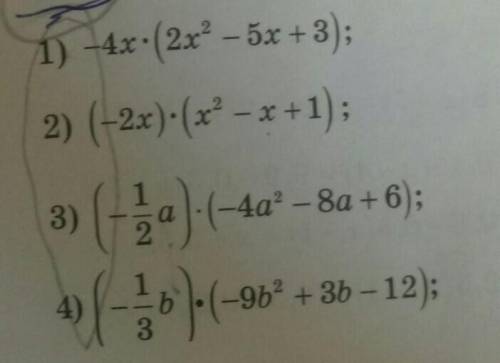 1) −4x·(2x² − 5x + 3);
2) (−2x)·(x² − x + 1);
3) (−1/2 a)·(−4a² − 8a + 6);
4) (−1/3 b)·(−9b² + 3b − 12);